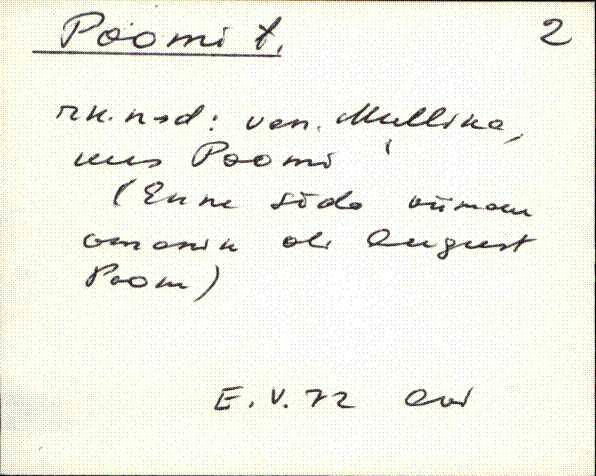 Poomi t. 2
rk.nsd: van. Mullika,
uus Poomi
(Enne sõda viimane
omanik oli August
Poom)
E. V. 72